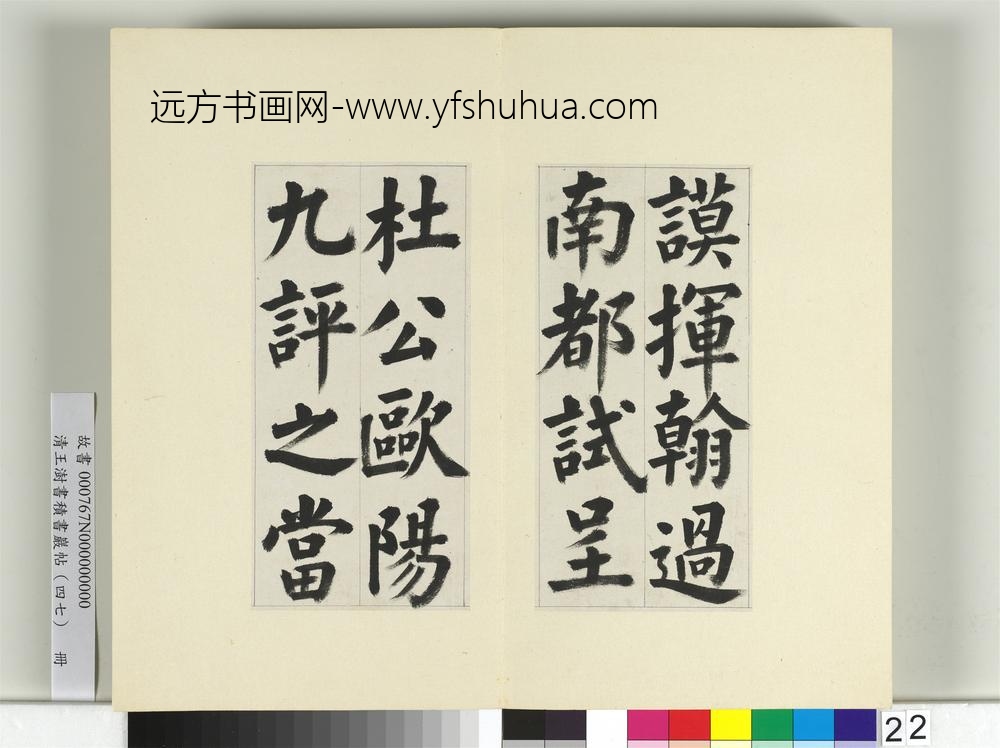 远方书画网-www.yfshuhua.com
謨揮翰過
南都試呈
杜公歐陽
九評之當
故書 000767N000000000
清王澍書積書巖帖（四七） 冊
22